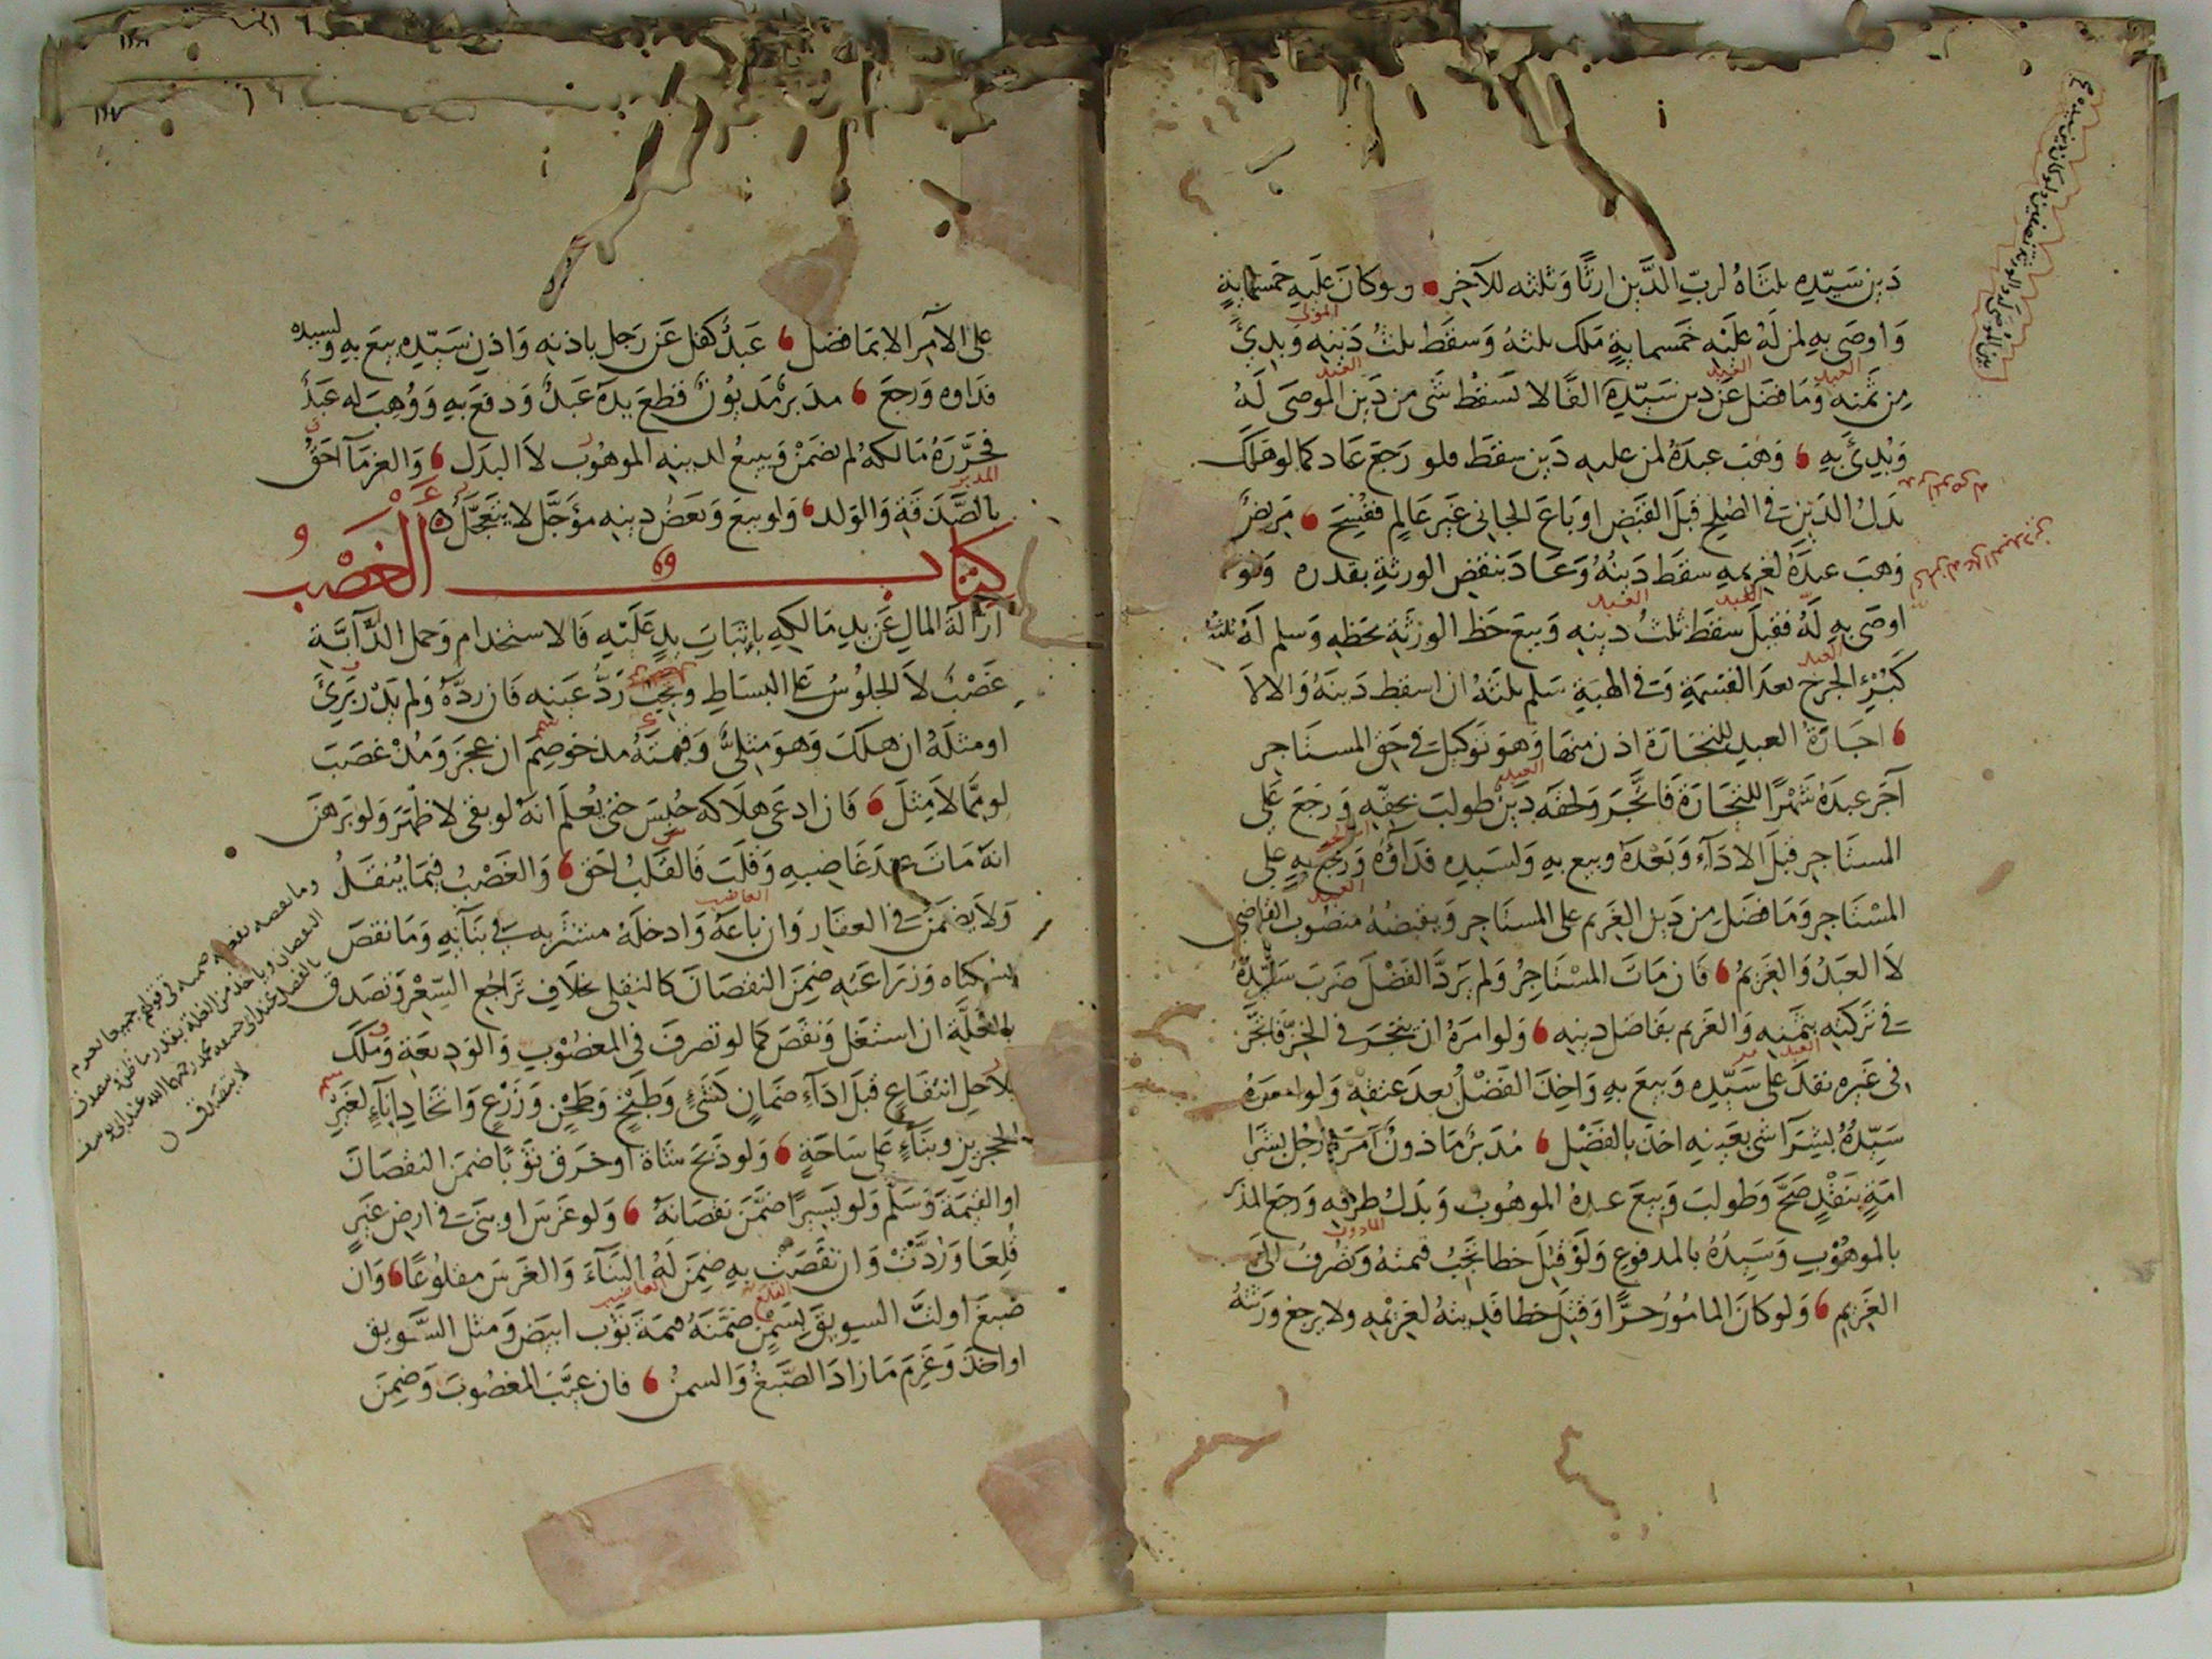 دين سيّده ثلثاه لربّ الدَّين ارثًا وثلثه للآخر ولو كان عليه خمسماية
واوصى به لمن لهُ عليه خمسماية ملك ثلثهُ وسقط ثلثُ دينه وبدئ
من ثمنه وما فضل عن دين سيّده الفًا لا يسقط شي من دين الموصى لهُ
وبُدِئ به وهب عبدهُ لمن عليه دين سقط فلو رجع عاد كما لو هلك
بدلُ الدّين في الصلح قبل القبض او باع الجاني غير عالم ففُسِخ مريضٌ
وهب عبدهُ لغريمه سقط دينهُ وعاد بنقض الورثة بقدره ولو
اوصى به لهُ فقبل سقط ثلثُ دينه وبيع حظ الورثة بحظه وسلم له ثلثهُ
كبُرْءِ الجرح بعد القسمة وفي الهبة سلم ثلثهُ ان اسقط دينهُ والا لا
اجارة العبد للتجارة اذن منها وهو توكيل في حق المستاجر
آجر عبدهُ شهرًا للتجارة فاتّجر ولحقه دين طولب بحقه ورجع على
المستاجر قبل الادآء وبعدهُ وبيع به ولسيده فداؤه ورجع به على
المستاجر وما فضل من دين الغريم على المستاجر ويقبضهُ منصوب القاضي
لا العبدُ والغريمُ فان مات المستاجرُ ولم يردَّ الفضل ضرب سيّدهُ
في تركته بثمنه والغريم بفاضل دينه ولو امرهُ ان يتجر في الخزّ فاتّجر
في غيره نفذ على سيّده وبيع به واخذ الفضلُ بعد عتقه ولو امره
سيّدهُ بشرآ شي بعينه اخذ بالفضل مُدبّر ماذون امرهُ رجُل بشرا
امةٍ بنقدٍ صحَّ وطولب وبيع عبدهُ الموهوب وبدلُ طرفه ورجع المدبر
بالموهوب وسيدهُ بالمدفوع ولو قُتِل خطا تجبُ قيمتهُ وتُصرفُ الى
الغريم ولو كان المامورُ حرًّا وقُتِل خطا فديتهُ لغريمه ولا يرجع ورثتهُ
على الآمر الا بما فضل عبدٌ كفل عن رجل باذنه واذن سيّده بيع به ولسيده
فداوه ورجع مدبرٌ مديونٌ قطع يدهُ عبدٌ ودفع به ووُهب له عبدٌ
فحرّرهُ مالكهُ لم يضمن وبيعُ لدينه الموهوب لا البدل والغرمآ احقُّ
بالصّدقة والولد ولو بيع وبعضُ دينه مؤجّل لا يتعجّل
كتاب الغصب
ازالة المال عن يد مالكه باثبات يدٍ عليه فالاستخدام وحمل الدّابّة
غصبٌ لا الجلوسُ على البساط ويجب ردُّ عينه فان ردّهُ ولم يدْر بَرِئ
او مثلهُ ان هلك وهو مثليٌّ وقيمتهُ مذ خوصم ان عجز ومُذْ غصب
لو ممّا لا مثل فان ادعى هلاكه حُبِس حتى يُعلم انه لو بقى لاظهر ولو برهن
انهُ مات عند غاصبه وقلب فالقلبُ احق والغصبُ فيما يُنقلُ
ولا يضمنُ في العقار وان باعهُ وادخلهُ مشتريه في بنآيه وما نقص
بسكناه وزراعته ضمن النقصان كالنقلي بخلاف تراجُع السّعر وتصدق
بالغلّة ان استغل ونقص كما لو تصرف في المغصوب والوديعة وملك
بلا حل انتفاع قبل ادآء ضمانٍ كشيّ وطبخٍ وطحن وزرع واتخاذ اناءٍ لغير
الحجرين وبنآءٍ على ساحة ولو ذبح شاة او خرق ثوبًا ضمن النقصان
او القيمة وسلم ولو يسيرًا ضمّن نقصانهُ ولو غرس او بنى في ارض غيرٍ
قُلِعا ورُدّت وان نقصت به ضمن لهُ البنآء والغرس مقلوعًا وان
صبغ او لتَّ السويق بسمن ضمّنهُ قيمة ثوب ابيض ومثل السّويق
او اخذ وغرم ما زاد الصّبغُ والسمنُ فان غيّب المغصوب وضمن